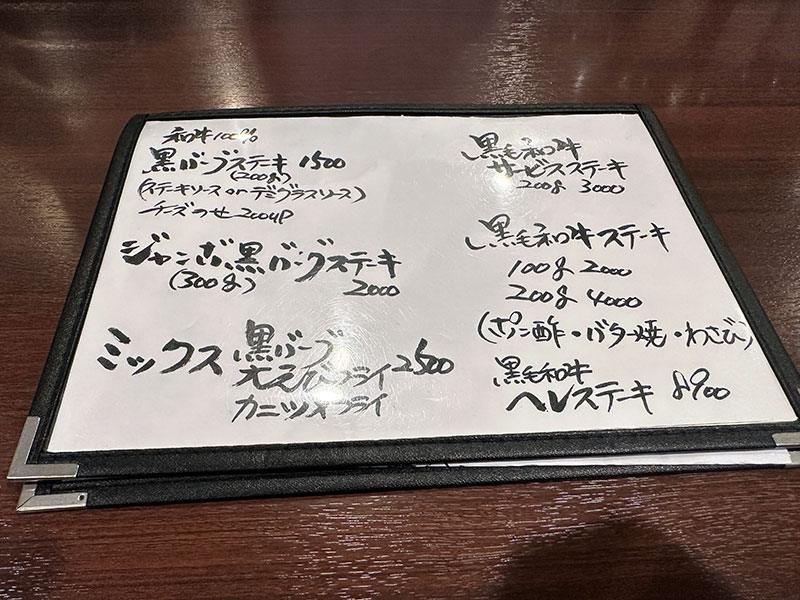 和牛100%
黒バーグステーキ 1500
(200g)
(ステーキソース or デミグラスソース)
チーズのせ 200UP
ジャンボ黒バーグステーキ
(300g) 2000
ミックス 黒バーグ 2500
大えびフライ
カニツメフライ
黒毛和牛
サービスステーキ
200g 3000
黒毛和牛ステーキ
100g 2000
200g 4000
(ポン酢・バター焼・わさび)
黒毛和牛
ヘレステーキ 8900